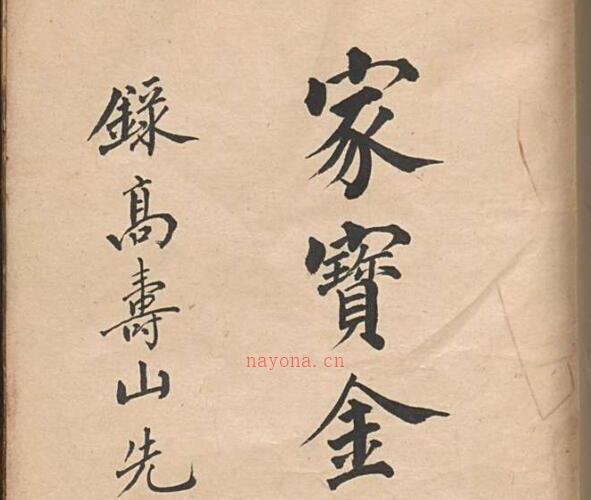 家寶金
錄高壽山先
nayona.cn